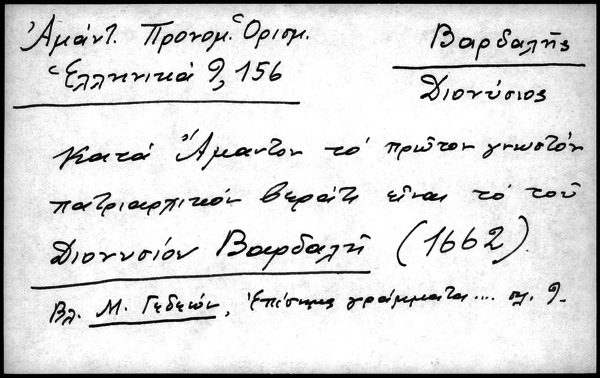 Ἀμάντ. Προνομ. Ὁρισμ.
Ἑλληνικά 9, 156
Βαρδαλῆς
Διονύσιος
Κατά Ἄμαντον τό πρῶτον γνωστόν
πατριαρχικόν βεράτι εἶναι τό τοῦ
Διονυσίου Βαρδαλῆ (1662).
Βλ. Μ. Γεδεών, Ἐπίσημα γράμματα.... σελ. 9.